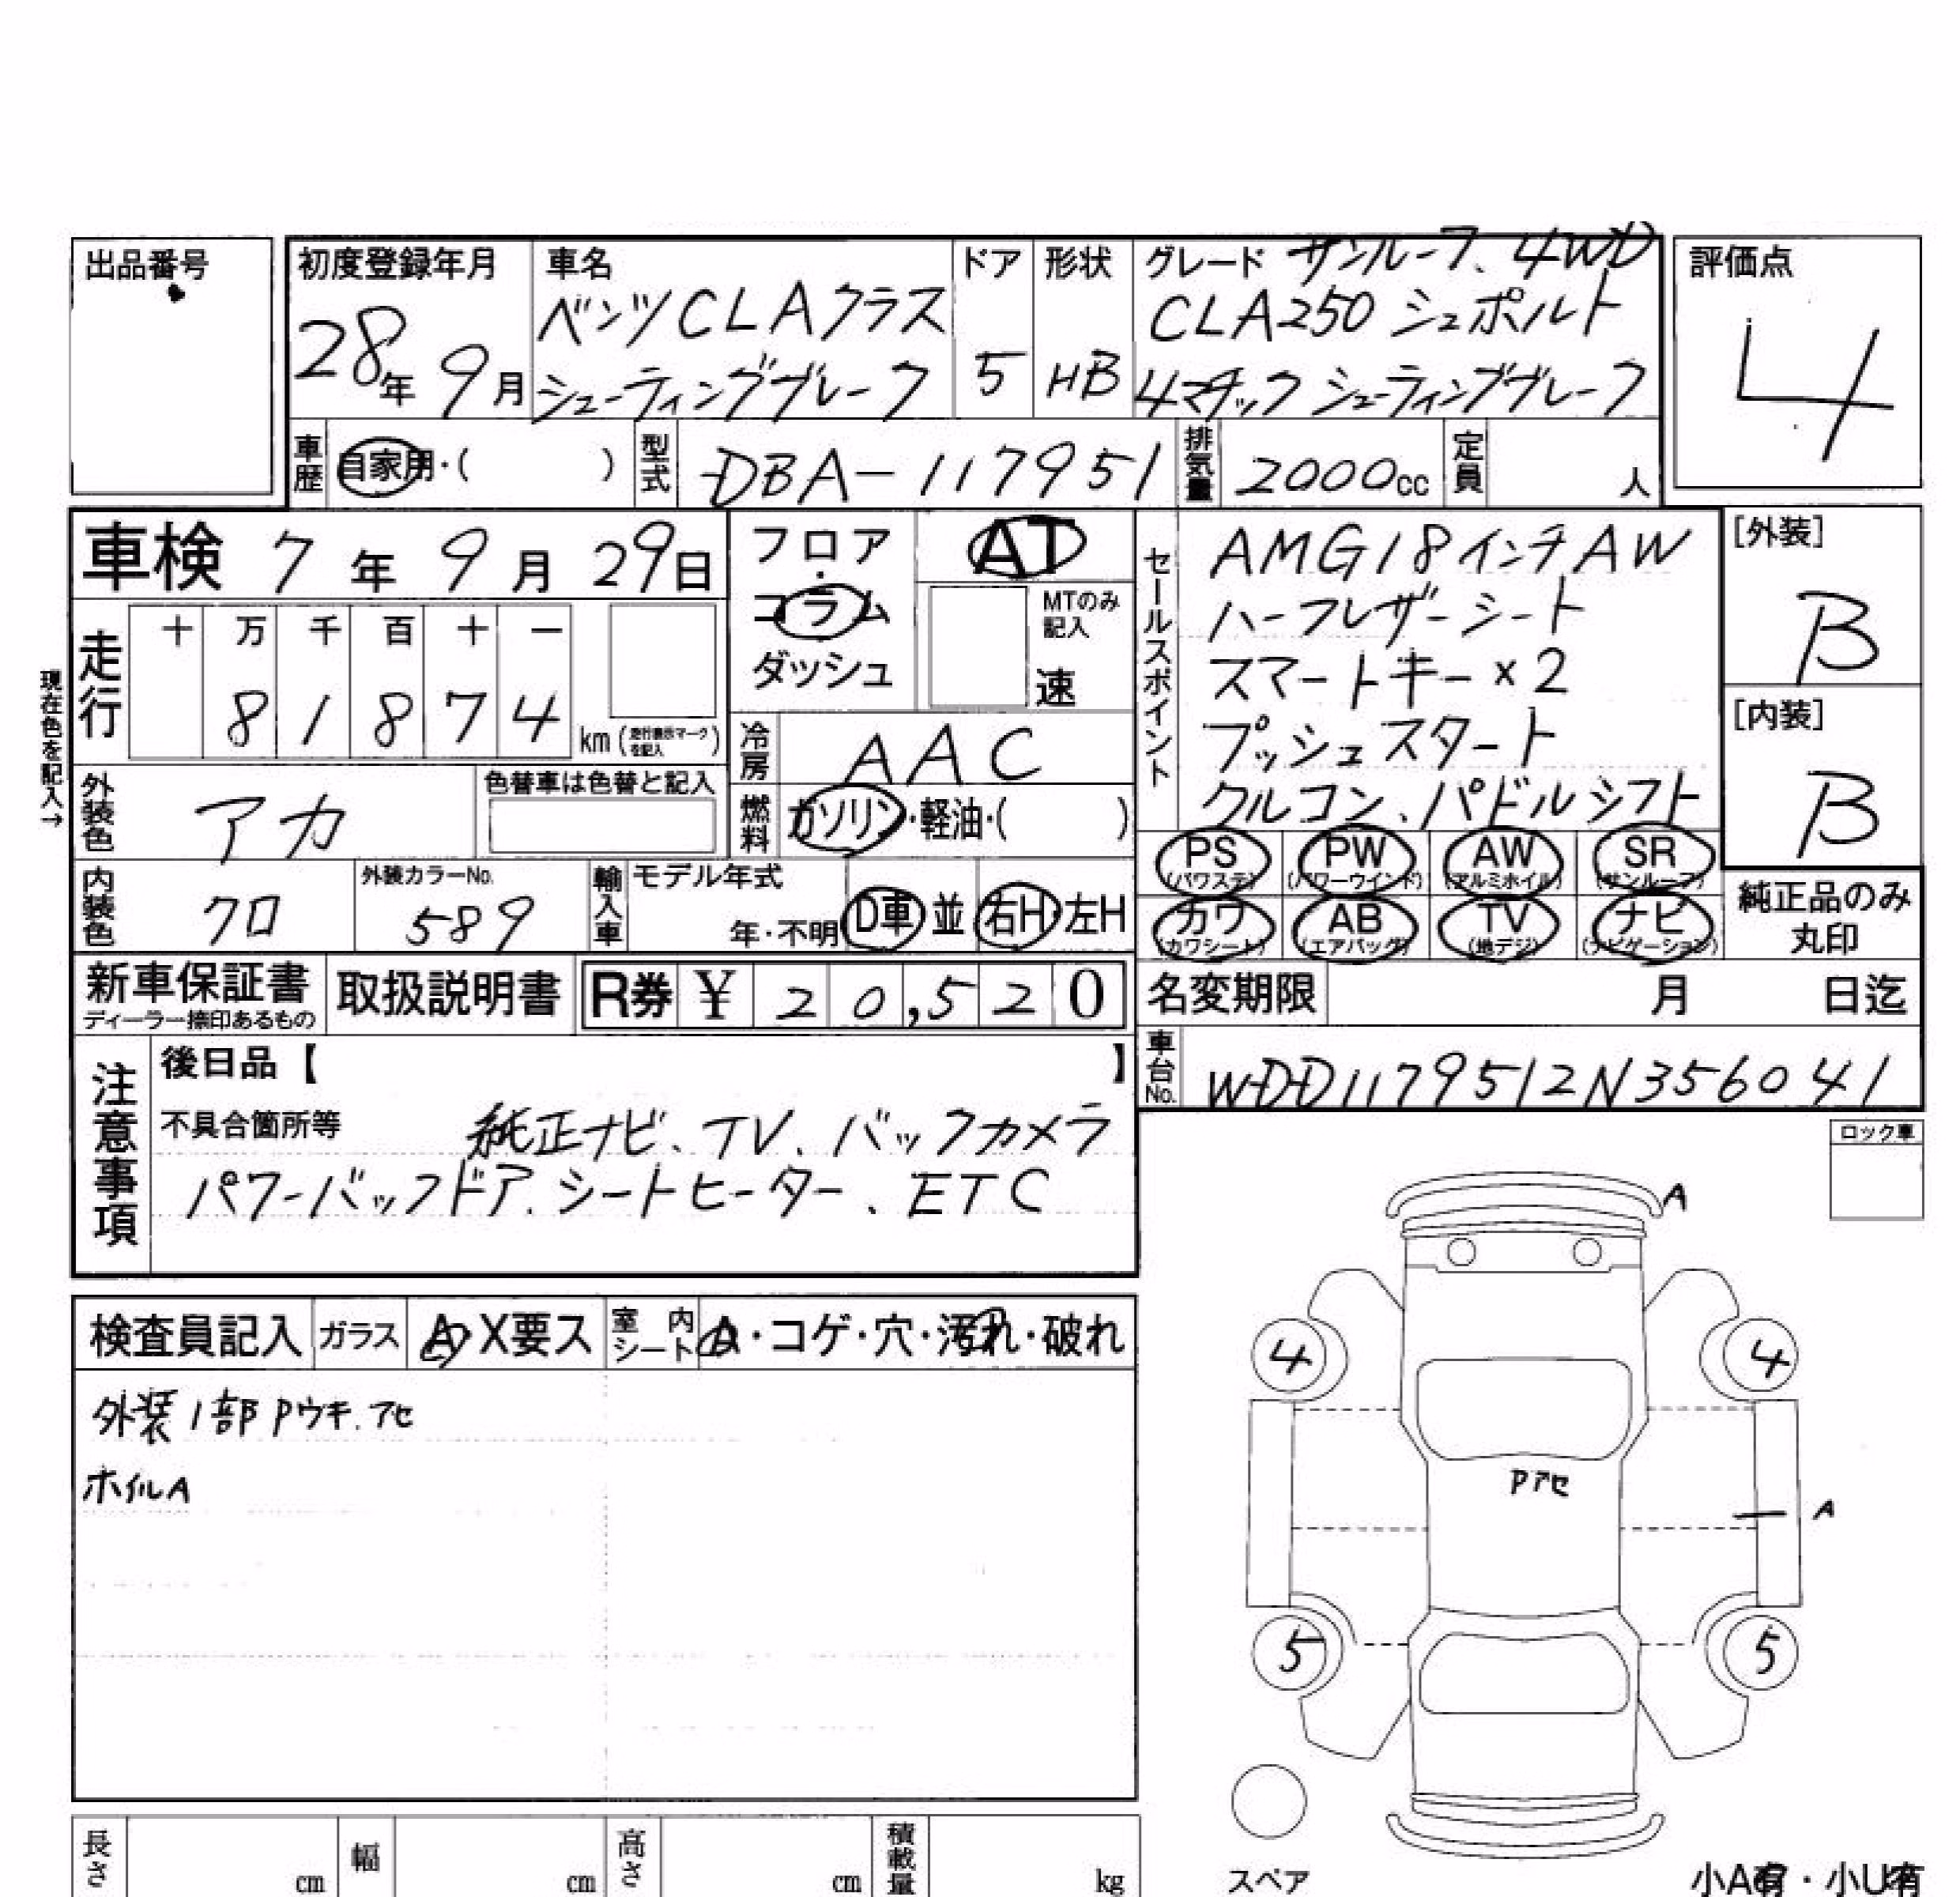 出品番号
初度登録年月
28年 9月
車名
ベンツCLAクラス
シューティングブレーク
ドア
5
形状
HB
グレード サンルーフ、4WD
CLA250 シュポルト
4マチック シューティングブレーク
評価点
4
車歴 自家用・( )
型式 DBA-117951
排気量 2000cc
定員 人
車検 7年 9月 29日
フロア・コラム
ダッシュ
AT
MTのみ記入
速
セールスポイント
AMG18インチAW
ハーフレザーシート
スマートキー×2
プッシュスタート
クルコン、パドルシフト
[外装]
B
[内装]
B
現在色を記入→
走行
十 万 千 百 十 一
8 1 8 7 4 km (走行表示マークを記入)
冷房 AAC
外装色 アカ
色替車は色替と記入
燃料 ガソリン・軽油・( )
内装色 クロ
外装カラーNo.
589
輸入車 モデル年式
年・不明
D車 並 右H・左H
PS (パワステ)
PW (パワーウインド)
AW (アルミホイル)
SR (サンルーフ)
カワ (カワシート)
AB (エアバッグ)
TV (地デジ)
ナビ (ナビゲーション)
純正品のみ
丸印
新車保証書
ディーラー捺印あるもの
取扱説明書
R券 ¥ 20,520
名変期限 月 日迄
車台No. WDD1179512N356041
注意事項
後日品【 】
不具合箇所等 純正ナビ、TV、バックカメラ
パワーバックドア、シートヒーター、ETC
ロック車
検査員記入 ガラス A X要ス 室内シート A・コゲ・穴・汚れ・破れ
外装1部Pウキ.アセ
ホイルA
A
4
4
Pアセ
A
5
5
スペア
長さ cm
幅 cm
高さ cm
積載量 kg
小A有・小U有